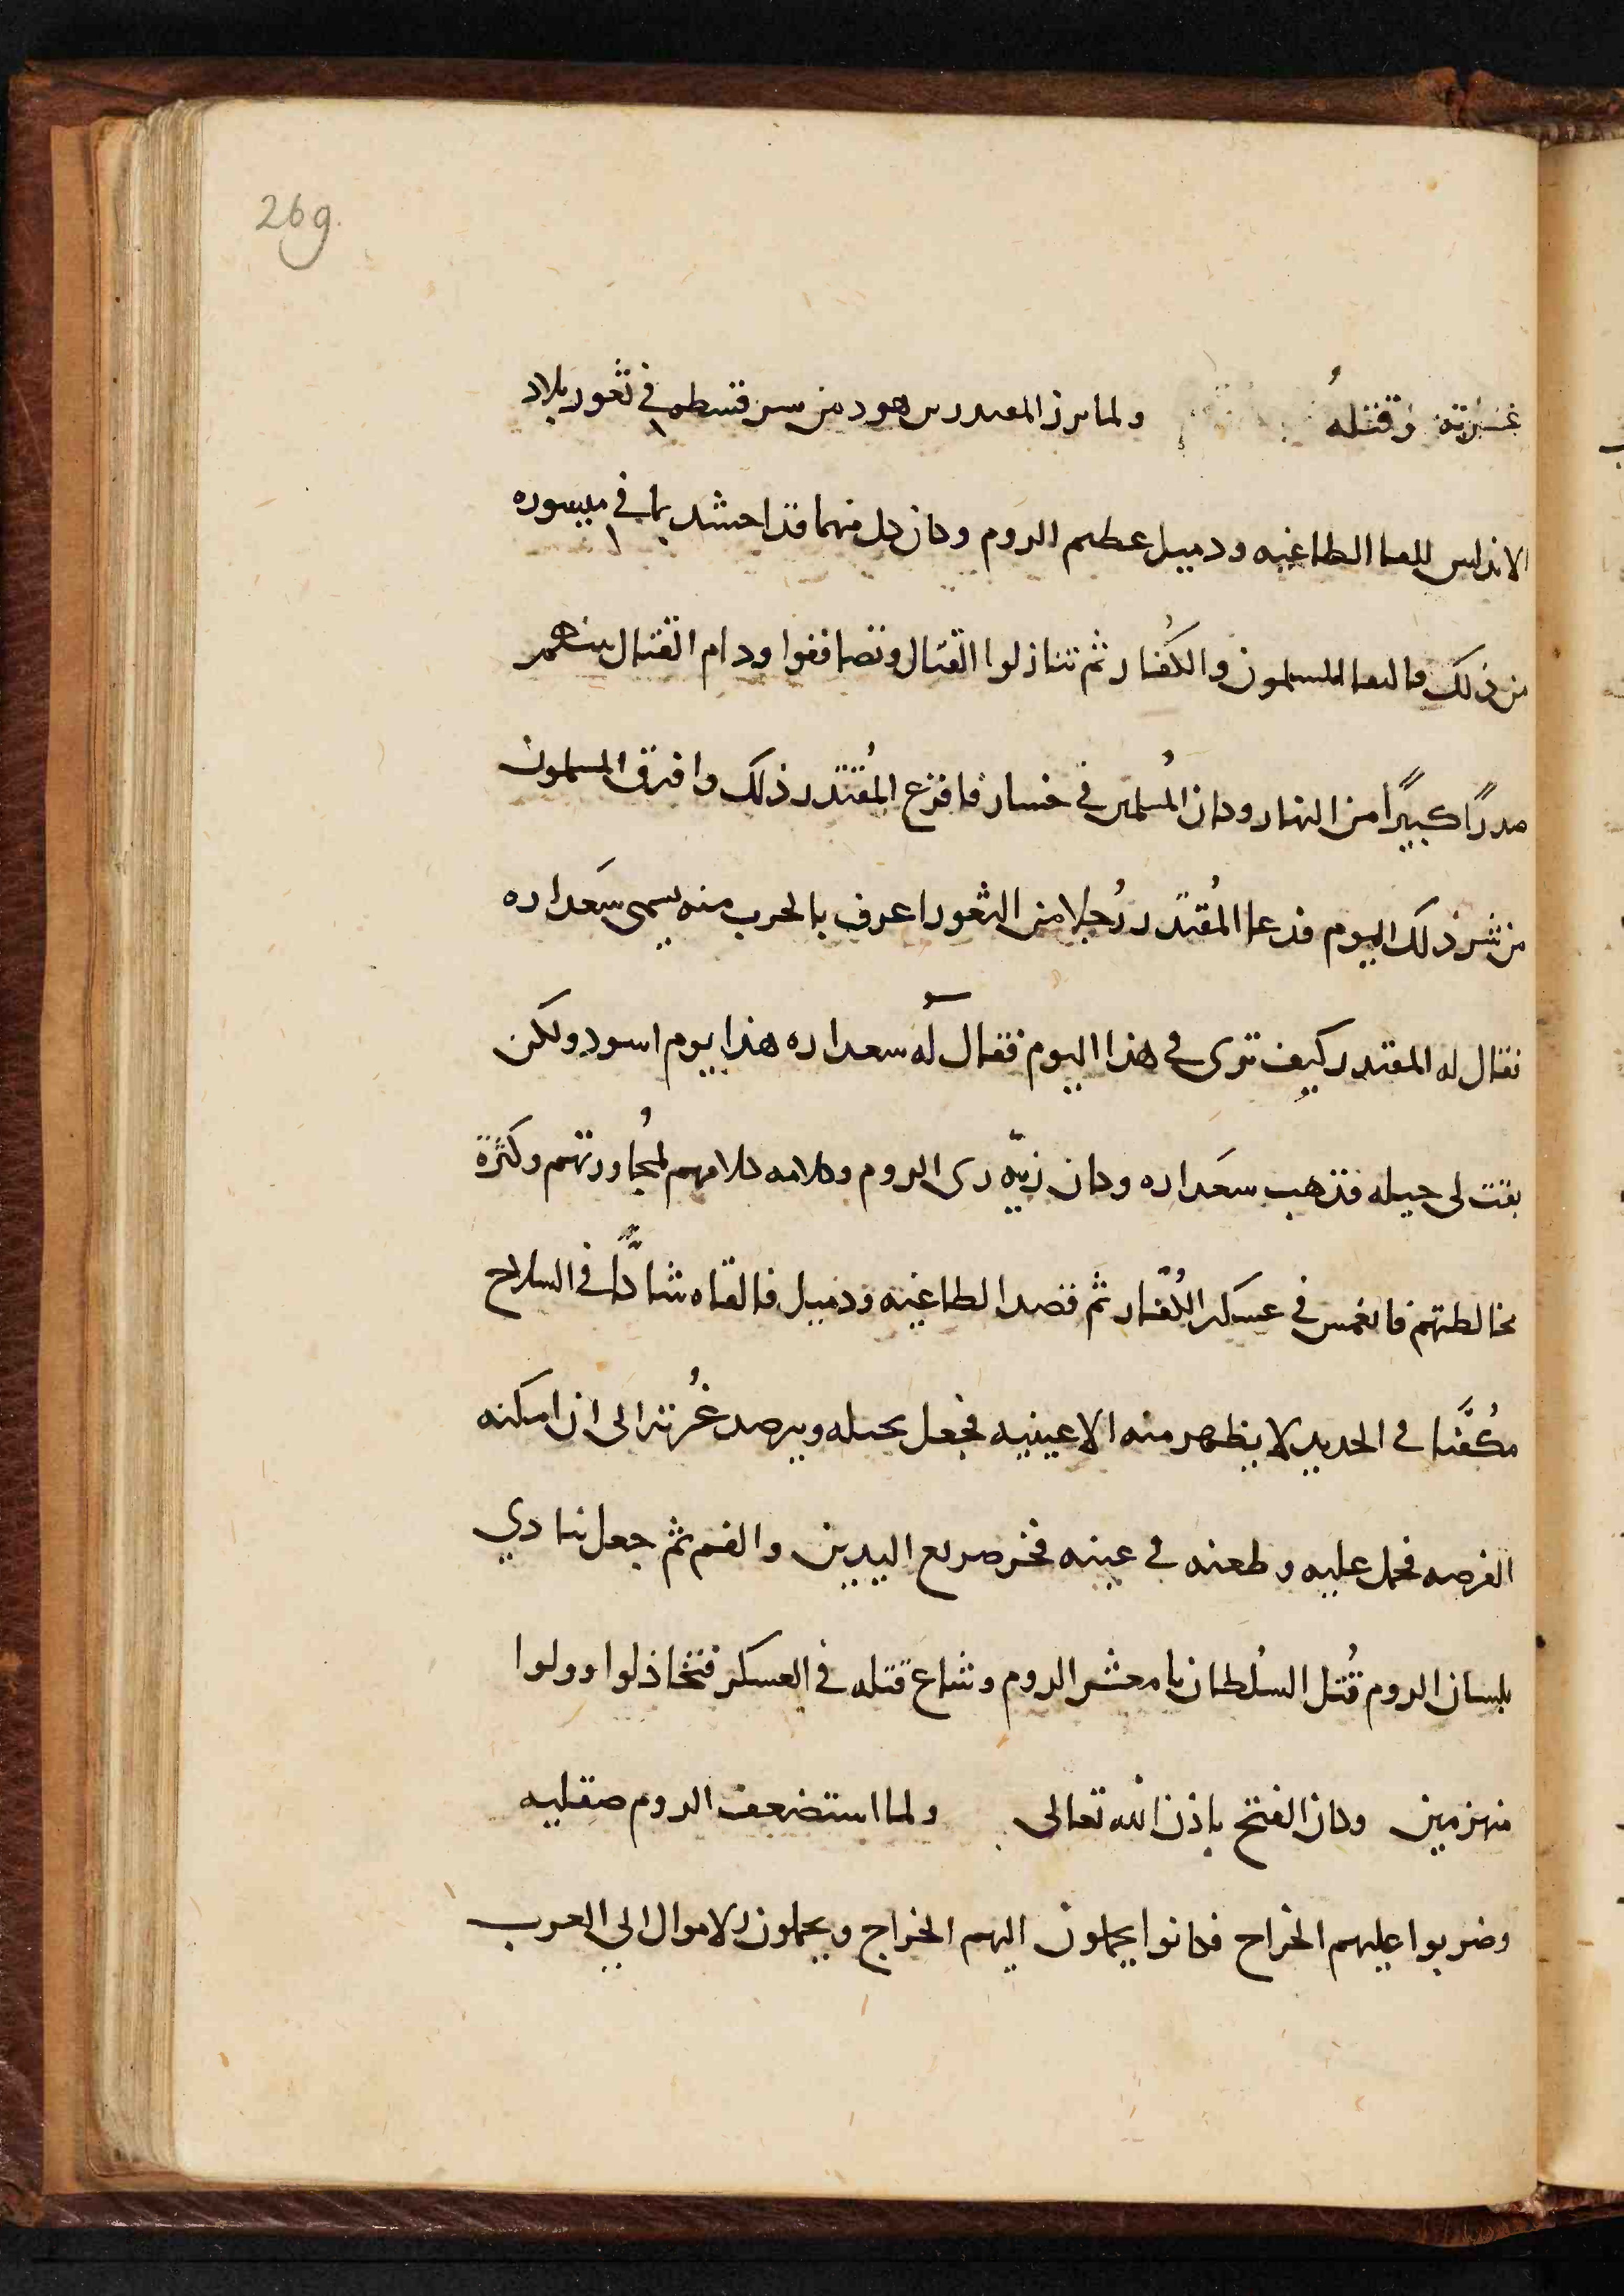 269.
غرته وقتله ولما برز المقتدر بن هود من سرقسطه في ثغور بلاد
الاندلس للقا الطاغيه ودميل عظيم الروم وكان كل منهما قد احتشد بما في ميسوره
من ذلك فالتقا المسلمون والكُفار ثم تنازلوا القتال وتصاففوا ودام القتال بينهم
صدرًا كبيرًا من النهار وكان المُسلمين في خسار فافزع المُقتدر ذلك وافترق المسلمون
من شر ذلك اليوم فدعا المُقتدر رُجلا من الثغور اعرف بالحرب منه يسمى سَعداره
فقال له المقتدر كيف ترى في هذا اليوم فقال له سعداره هذا يوم اسود ولكن
بقت لى حيله فذهب سَعداره وكان زيّه زى الروم وكلامه كلامهم لمُجاورتهم وكثرة
مخالطتهم فانغمس في عسكر الكُفّار ثم قصد الطاغيه ودميل فالقاه شاكًّا في السلاح
مكُفَّنا في الحديد لا يظهر منه الا عينيه فجعل يحيله ويرصد غُرته الى ان امكنه
الفرصه فحمل عليه وطعنه في عينه فخر صريع اليدين والفم ثم جعل ينادي
بلسان الروم قُتل السُلطان يا معشر الروم وشاع قتله في العسكر فتخاذلوا وولوا
منهزمين وكان الفتح باذن الله تعالى ولما استضعف الروم صقليه
وضربوا عليهم الخراج فكانوا يحملون اليهم الخراج ويحملون الاموال الي العرب